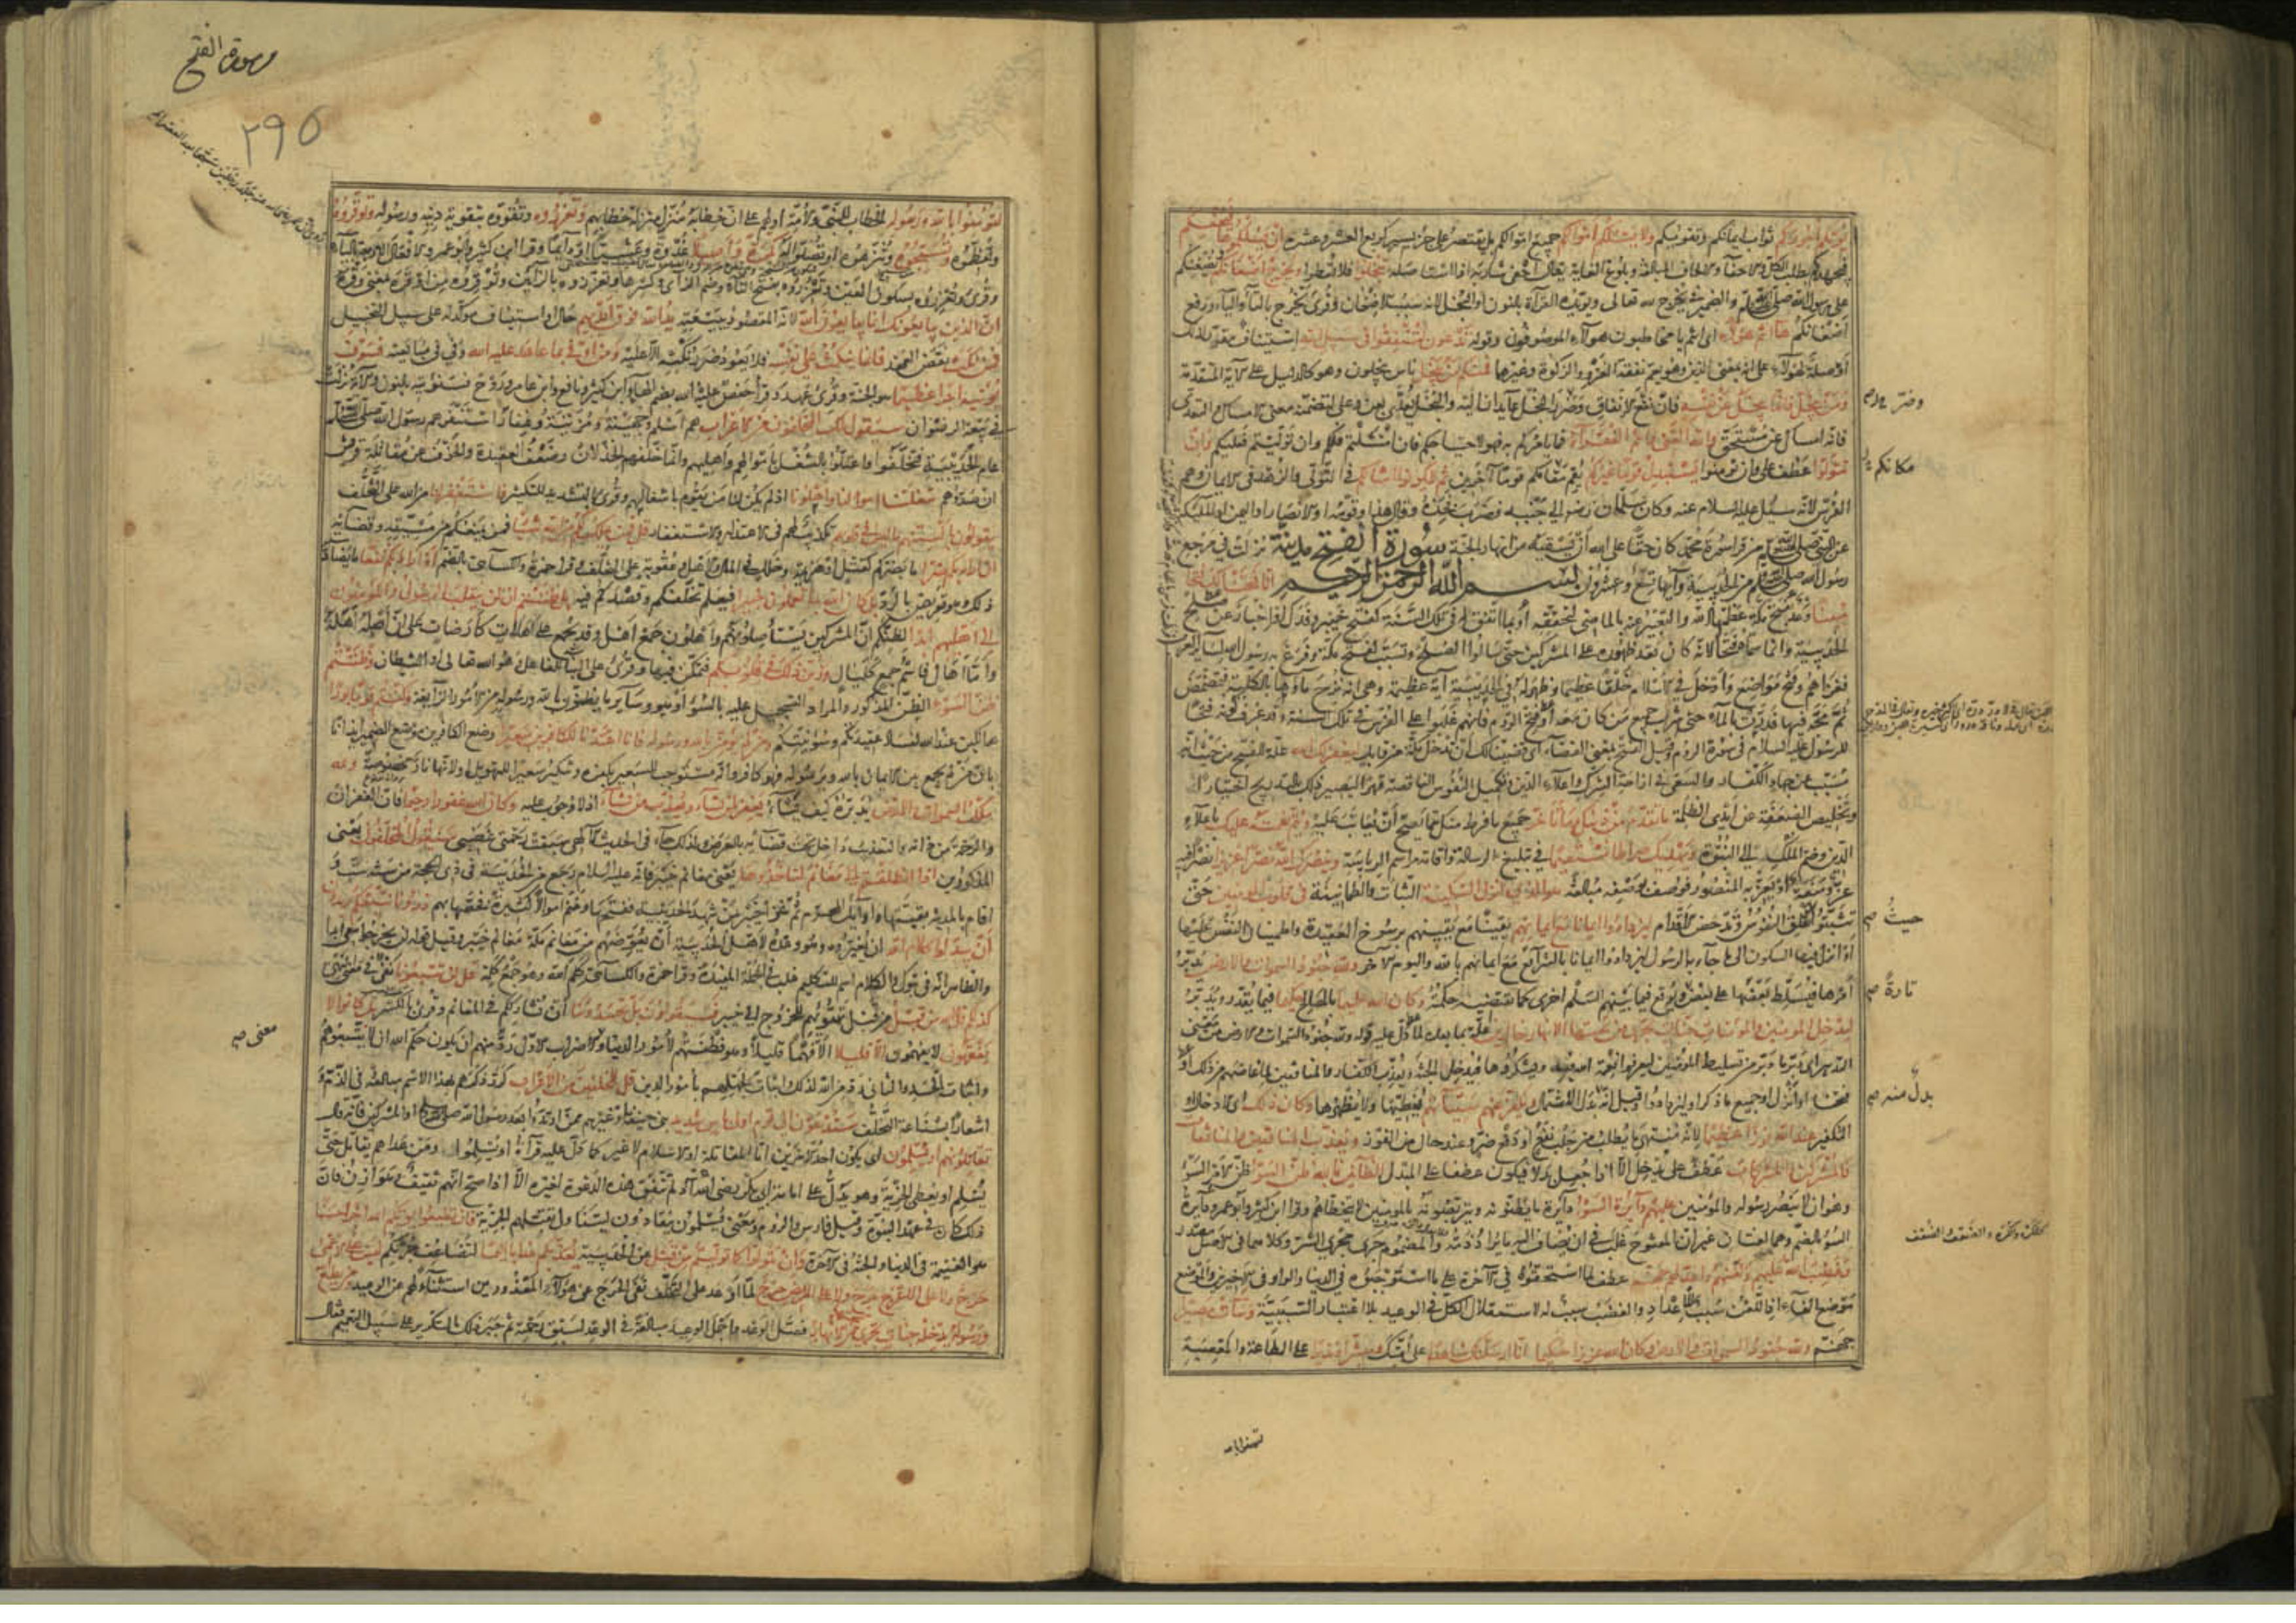 يؤتكم أجوركم ثواب إيمانكم وتقويكم ولا يسئلكم أموالكم جميع أموالكم بل يقتصر على جزء يسير كربع العشر وعشره إن يسئلكموها فيحفكم
فيجهدكم بطلب الكل والاحفاء والالحاف المبالغة وبلوغ الغاية يقال أحفى شاربه اذا استأصله تبخلوا فلا تعطوا ويخرج أضغانكم ويضغنكم
على رسول الله صلى الله عليه وسلم والضمير في يخرج لله تعالى ويؤيده القراءة بالنون أو البخل لأنه سبب الاضغان وقرئ يخرج بالتاء والياء ورفع
أضغانكم ها أنتم هؤلاء أي أنتم يا مخاطبون هؤلاء الموصوفون وقوله تدعون لتنفقوا في سبيل الله استيناف مقرر لذلك
أو صلة لهؤلاء على أنه بمعنى الذين وهو يعم نفقة الغزو والزكوة وغيرها فمنكم من يبخل ناس يبخلون وهو كالدليل على الآية المتقدمة
ومن يبخل فانما يبخل عن نفسه فان نفع الانفاق وضر البخل عايدان اليه والبخل يعدى بعن وعلى لتضمنه معنى الامساك والتعدي
فانه امساك عن مستحق والله الغني وأنتم الفقراء فما يأمركم به فهو لاحتياجكم فان امتثلتم فلكم وان توليتم فعليكم وان
تتولوا عطف على وان تؤمنوا يستبدل قوما غيركم يقم مقامكم قوما آخرين ثم لا يكونوا أمثالكم في التولي والزهد في الايمان وهم
الفرس لأنه سئل عليه السلام عنه وكان سلمان رضي الى جنبه فضرب فخذه وقال هذا وقومه أو الانصار أو اليمن أو الملائكة
عن النبي صلى الله عليه وسلم من قرأ سورة محمد كان حقا على الله أن يسقيه من أنهار الجنة سورة الفتح مدنية نزلت في مرجع
رسول الله صلى الله عليه وسلم من الحديبية وآيها تسع وعشرون بسم الله الرحمن الرحيم إنا فتحنا لك فتحا
مبينا وعد بفتح مكة عظمها الله والتعبير عنه بالماضي لتحققه أو بما اتفق له في تلك السنة كفتح خيبر وفدك أو اخبار عن صلح
الحديبية وانما سماه فتحا لأنه كان بعد ظهوره على المشركين حتى سألوا الصلح وتسبب لفتح مكة وفرغ به رسول الله لسائر العرب
فغزاهم وفتح مواضع وأدخل في الاسلام خلقا عظيما وظهر له في الحديبية آية عظيمة وهي أنه نزح ماؤها بالكلية فتمضمض
ثم مجه فيها فدرت بالماء حتى شرب جميع من كان معه أو فتح الروم فانهم غلبوا على الفرس في تلك السنة وقد عرف كونه فتحا
للرسول عليه السلام في سورة الروم وقيل الفتح بمعنى القضاء أي قضينا لك أن تدخل مكة من قابل ليغفر لك الله علة للفتح من حيث انه
مسبب عن جهاد الكفار والسعي في ازاحة الشرك واعلاء الدين وتكميل النفوس الناقصة قهرا ليصير ذلك بالتدريج اختيارا
وتخليص الضعفة عن أيدي الظلمة ما تقدم من ذنبك وما تأخر جميع ما فرط منك مما يصح أن يعاتب عليه ويتم نعمته عليك باعلاء
الدين وضم الملك الى النبوة ويهديك صراطا مستقيما في تبليغ الرسالة واقامة مراسم الرياسة وينصرك الله نصرا عزيزا نصرا فيه
عز ومنعة أو يعز به المنصور فوصف بوصفه مبالغة هو الذي أنزل السكينة الثبات والطمأنينة في قلوب المؤمنين حتى
تثبتوا تقلق النفوس وتدحض الأقدام ليزدادوا ايمانا مع ايمانهم يقينا مع يقينهم برسوخ العقيدة واطمينان النفس عليها
أو أنزل فيها السكون الى ما جاء به الرسول ليزدادوا ايمانا بالشرائع مع ايمانهم بالله واليوم الآخر ولله جنود السموات والأرض يدبر
أمرها فيسلط بعضها على بعض ويوقع فيما بينهم السلم أخرى كما تقتضيه حكمته وكان الله عليما بالمصالح حكيما فيما يقدر ويدبر
ليدخل المؤمنين والمؤمنات جنات تجري من تحتها الأنهار خالدين علة بما بعد لما دل عليه قوله ولله جنود السموات والأرض من معنى
التدبير أي دبر ما دبر من تسليط المؤمنين ليعرفوا نعمة الله فيه ويشكروها فيدخل الجنة ويعذب الكفار والمنافقين لما غاظهم من ذلك أو
فتحنا أو أنزل أو جميع ما ذكر أو ليزدادوا وقيل انه بدل الاشتمال ويكفر عنهم سيئاتهم يغطيها ولا يظهرها وكان ذلك أي الادخال
التكفير عند الله فوزا عظيما لأنه منتهى ما يطلب من جلب نفع أو دفع ضر وعند حال من الفوز ويعذب المنافقين والمنافقات
والمشركين والمشركات عطف على يدخل الا اذا جعل بدلا فيكون عطفا على المبدل الظانين بالله ظن السوء ظن الأمر السوء
وهو أن لا ينصر رسوله والمؤمنين عليهم دائرة السوء دائرة ما يظنونه ويتربصونه بالمؤمنين لا يتخطاهم وقرأ ابن كثير وأبو عمرو دائرة
السوء بالضم وهما لغتان غير أن المفتوح غلب في أن يضاف اليه ما يراد ذمه والمضموم جرى مجرى الشر وكلاهما في الأصل مصدر
وغضب الله عليهم ولعنهم وأعد لهم جهنم عطف لما استحقوه في الآخرة على ما استوجبوه في الدنيا والواو في الأخيرين والموضع
موضع الفاء اذ اللعن سبب للاعداد والغضب سبب له لاستقلال الكل في الوعيد بلا اعتبار السببية وساءت مصيرا
جهنم ولله جنود السموات والأرض وكان الله عزيزا حكيما إنا أرسلناك شاهدا على أمتك ومبشرا ونذيرا على الطاعة والمعصية
وضر صح
مكانكم
حيث صح
تارة صح
بدل منه صح
لتؤمنوا بالله
سورة الفتح
٢٩٥
لتؤمنوا بالله ورسوله الخطاب للنبي والأمة أو لهم على أن خطابه منزل منزلة خطابهم وتعزروه وتقووه بتقوية دينه ورسوله وتوقروه
وتعظموه وتسبحوه وتنزهوه أو تصلوا له بكرة وأصيلا غدوة وعشيا أو دائما وقرأ ابن كثير وأبو عمرو الأفعال الأربعة بالياء
وقرئ وتعزروه بسكون العين وتعزروه بفتح التاء وضم الزاي وكسرها وتعززوه بالزايين وتوقروه من أوقره بمعنى وقره
ان الذين يبايعونك انما يبايعون الله لأنه المقصود ببيعته يد الله فوق أيديهم حال أو استيناف مؤكد له على سبيل التخييل
فمن نكث نقض العهد فانما ينكث على نفسه فلا يعود ضرر نكثه الا عليه ومن أوفى بما عاهد عليه الله وفى في مبايعته فسوف
يؤتيه أجرا عظيما هو الجنة وقرئ عهد وقرأ حفص عليه الله بضم الهاء وابن كثير ونافع وابن عامر وروح فسنؤتيه بالنون والآية نزلت
في بيعة الرضوان سيقول لك المخلفون من الأعراب هم أسلم وجهينة ومزينة وغفار استنفرهم رسول الله صلى الله عليه وسلم
عام الحديبية فتخلفوا واعتلوا بالشغل بأموالهم وأهليهم وانما خلفهم الخذلان وضعف العقيدة والخوف عن مقاتلة قريش
ان صدوهم شغلتنا أموالنا وأهلونا اذ لم يكن لنا من يقوم بأشغالهم وقرئ بالتشديد للتكثير فاستغفر لنا من الله على التخلف
يقولون بألسنتهم ما ليس في قلوبهم تكذيب لهم في الاعتذار والاستغفار قل فمن يملك لكم من الله شيئا فمن يمنعكم من مشيته وقضائه
ان أراد بكم ضرا ما يضركم كقتل أو هزيمة وخلل في المال والأهل وعقوبة على التخلف وقرأ حمزة والكسائي بالضم أو أراد بكم نفعا ما يضاد
ذلك وهو تعريض بالرد بل كان الله بما تعملون خبيرا فيعلم تخلفكم وقصدكم فيه بل ظننتم أن لن ينقلب الرسول والمؤمنون
الى أهليهم أبدا لظنكم أن المشركين يستأصلونهم وأهلون جمع أهل وقد يجمع على أهلات كأرضات على أن أصله أهلة
وأما أهال فاسم جمع كليال وزين ذلك في قلوبكم فتمكن فيها وقرئ على البناء للفاعل وهو الله تعالى أو الشيطان وظننتم
ظن السوء الظن المذكور والمراد التسجيل عليه بالسوء أو هو وسائر ما يظنون بالله ورسوله من الأمور الزائغة وكنتم قوما بورا
هالكين عند الله لفساد عقيدتكم وسوء نيتكم ومن لم يؤمن بالله ورسوله فانا أعتدنا للكافرين سعيرا وضع الكافرين موضع الضمير ايذانا
بأن من لم يجمع بين الايمان بالله ورسوله فهو كافر وأنه مستوجب للسعير بكفره وتنكير سعيرا للتهويل أو لأنها نار مخصوصة ولله
ملك السموات والأرض يدبره كيف يشاء يغفر لمن يشاء ويعذب من يشاء اذ لا وجوب عليه وكان الله غفورا رحيما فان الغفران
والرحمة من ذاته والتعذيب داخل تحت قضائه بالعرض ولذلك جاء في الحديث الالهي سبقت رحمتي غضبي سيقول المخلفون يعني
المذكورين اذا انطلقتم الى مغانم لتأخذوها يعني مغانم خيبر فانه عليه السلام رجع من الحديبية في ذي الحجة من سنة ست و
أقام بالمدينة بقيتها وأوائل المحرم ثم غزا خيبر بمن شهد الحديبية ففتحها وغنم أموالا كثيرة فخصها بهم ذرونا نتبعكم يريدون
أن يبدلوا كلام الله أن يغيروه وهو وعده لأهل الحديبية أن يعوضهم من مغانم مكة مغانم خيبر وقيل قوله لن تخرجوا معي أبدا
والظاهر أنه في تبوك والكلام اسم للتكليم غلب في الجملة المفيدة وقرأ حمزة والكسائي كلم الله وهو جمع كلمة قل لن تتبعونا نفي في معنى النهي
كذلكم قال الله من قبل من قبل تهيئهم للخروج الى خيبر فسيقولون بل تحسدوننا أن نشارككم في المغانم وقرئ بالكسر بل كانوا لا
يفقهون لا يفهمون الا قليلا الا فهما قليلا وهو فطنتهم لأمور الدنيا والاضراب الأول رد منهم أن يكون حكم الله أن لا يتبعوهم
واثبات الحسد والثاني رد من الله لذلك اثبات لجهلهم بأمور الدين قل للمخلفين من الأعراب كرر ذكرهم بهذا الاسم مبالغة في الذم و
اشعارا بشناعة التخلف ستدعون الى قوم أولي بأس شديد بني حنيفة أو غيرهم ممن ارتدوا بعد رسول الله صلى الله عليه وسلم أو المشركين فانه قال
تقاتلونهم أو يسلمون أي يكون أحد الأمرين اما المقاتلة أو الاسلام لا غير كما دل عليه قراءة أو يسلموا ومن عداهم يقاتل حتى
يسلم أو يعطي الجزية وهو يدل على امامة أبي بكر رضي الله اذ لم تتفق هذه الدعوة لغيره الا اذا صح أنهم ثقيف وهوازن فان
ذلك كان في عهد النبوة وقيل فارس والروم ومعنى يسلمون ينقادون ليتناول تقبلهم الجزية فان تطيعوا يؤتكم الله أجرا حسنا
هو الغنيمة في الدنيا والجنة في الآخرة وان تتولوا كما توليتم من قبل عن الحديبية يعذبكم عذابا أليما لتضاعف جرمكم ليس على الأعمى
حرج ولا على الأعرج حرج ولا على المريض حرج لما أوعد على التخلف نفى الحرج عن هؤلاء المعذورين استثناء لهم عن الوعيد ومن يطع الله
ورسوله يدخله جنات تجري من تحتها الأنهار فصل الوعد وأجمل الوعيد مبالغة في الوعد لسبق رحمته ثم جبر ذلك بالتكرير على سبيل التعميم فقال
معنى صح